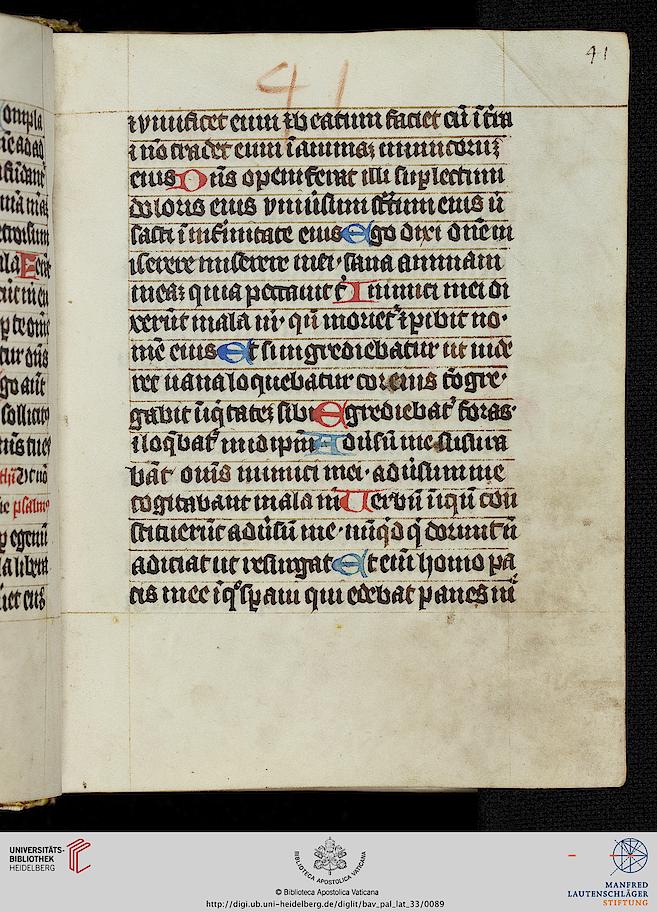 41
41
⁊ viuificet eum ⁊ beatum faciet eū ī t̄ra
⁊ nō tradet eum ī animaꝫ inimicoruꝫ
eius Dn̄s opem ferat illi suꝑ lectum
doloris eius vniūsum st̄tum eius ū
sasti ī infirmitate eius Ego dixi dn̄e m
iserere miserere mei· sana animam
meaꝫ quia peccaui t̄ Inimici mei di
xerūt mala m̄· qn̄ moriet᷑ ⁊ ꝑibit no·
mē eius Et si ingrediebatur ut uide
ret uana loquebatur cor eius cōgre·
gabit īiq̄tateꝫ sibi Egrediebat᷑ foras·
⁊ loq̄bat᷑ in idip̄m Adūsū me susura
bāt om̄s inimici mei· adūsum me
cogitabant mala m̄ Uerbū iniqū con
stituerūt adūsū me· nūq̄d q̄ dormit n̄
adiciat ut resurgat Et em̄ homo pa
cis mee ī q° sꝑaui qui edebat panes m̄
ompla
psalm9
UNIVERSITÄTS-
BIBLIOTHEK
HEIDELBERG
BIBLIOTECA APOSTOLICA VATICANA
© Biblioteca Apostolica Vaticana
http://digi.ub.uni-heidelberg.de/diglit/bav_pal_lat_33/0089
MANFRED
LAUTENSCHLÄGER
STIFTUNG